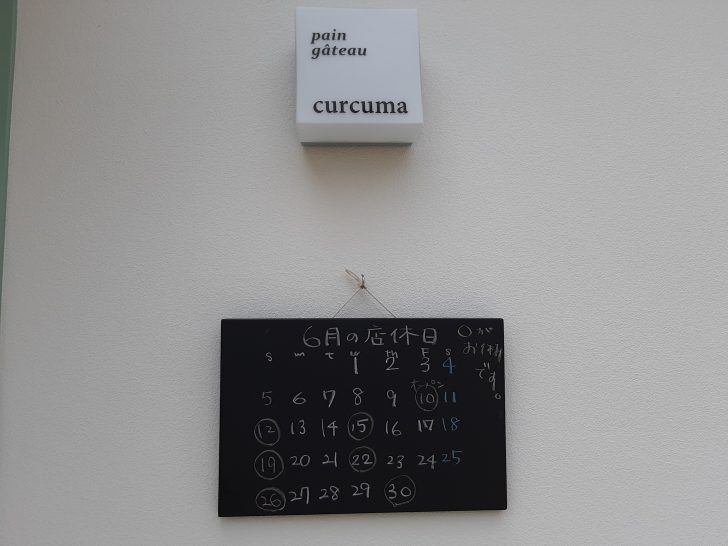 pain
gâteau
curcuma
6月の店休日
○が
お休み
です。
S M T W TH F S
1 2 3 4
オープン
5 6 7 8 9 10 11
12 13 14 15 16 17 18
19 20 21 22 23 24 25
26 27 28 29 30